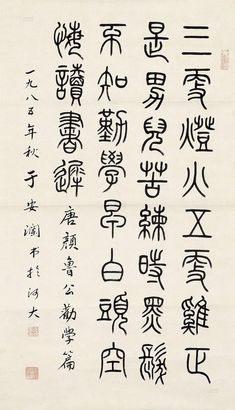 三更燈火五更雞正
是男兒苦練時黑髮
不知勤學早白頭空
悔讀書遲 唐顏魯公勸學篇
一九八五年秋于安瀾书於河大